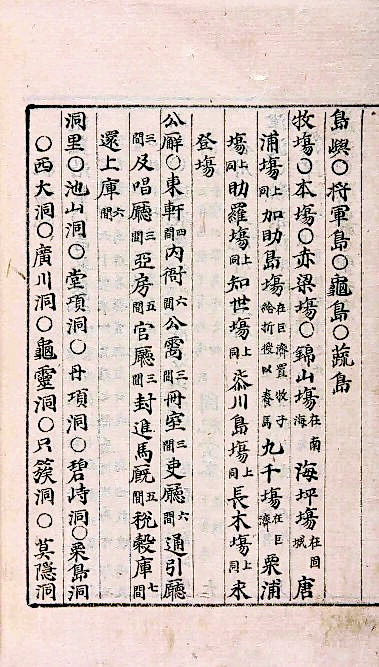 島嶼○將軍島○龜島○蔬島
牧塲○本塲○赤梁塲○錦山塲在南海 海坪塲在固城 唐
浦塲上同 加助島塲在巨濟置牧子給折授以養馬 九千塲在巨濟 栗浦
塲上同 助羅塲上同 知世塲上同 柒川島塲上同 長木塲上同 末
登塲
公廨○東軒四間 內衙六間 公需三間 冊室三間 吏廳六間 通引廳
三間 及唱廳三間 亞房五間 官廳三間 封進馬廐五間 稅穀庫七間
還上庫六間
洞里○池山洞○堂項洞○丹項洞○碧峙洞○栗島洞
○西大洞○廣川洞○龜靈洞○只簇洞○莫隱洞